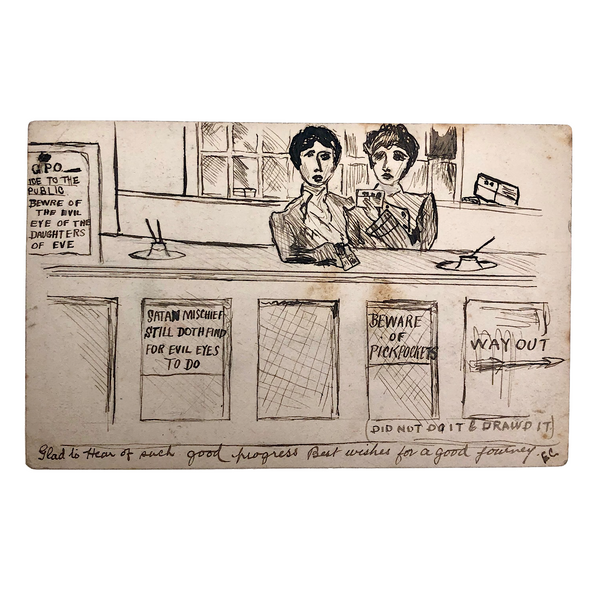 GPO
IDE TO THE
PUBLIC
BEWRE OF
THE EVIL
EYE OF THE
DAUGHTERS
OF EVE
SATAN MISCHIEF
STILL DOTH FIND
FOR EVIL EYES
TO DO
BEWARE
OF
PICKPOCKETS
WAY OUT
DID NOT DO IT & DRAWD IT
Glad to Hear of such good progress Best wishes for a good journey. EC